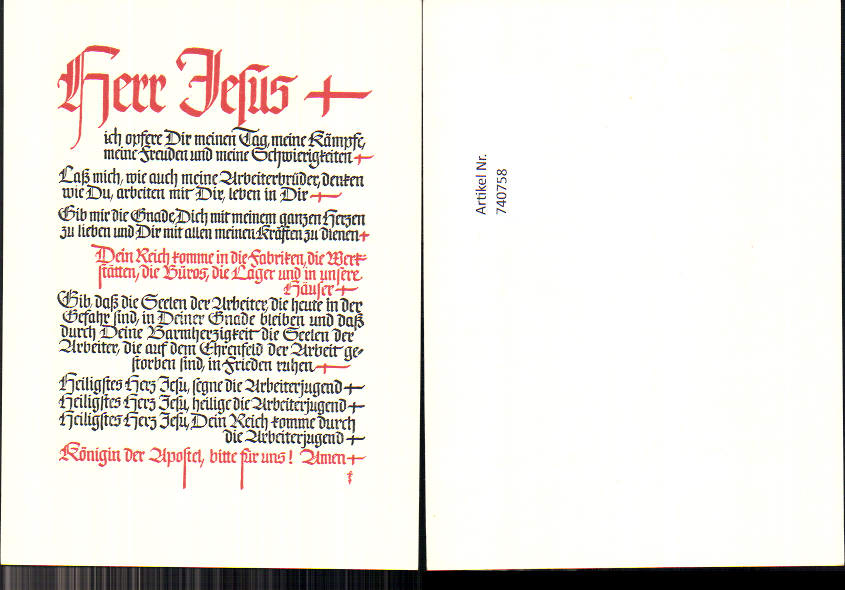 Herr Jesus +
ich opfere Dir meinen Tag, meine Kämpfe,
meine Freuden und meine Schwierigkeiten +
Laß mich, wie auch meine Arbeiterbrüder, denken
wie Du, arbeiten mit Dir, leben in Dir +
Gib mir die Gnade, Dich mit meinem ganzen Herzen
zu lieben und Dir mit allen meinen Kräften zu dienen +
Dein Reich komme in die Fabriken, die Werk-
stätten, die Büros, die Lager und in unsere
Häuser +
Gib, daß die Seelen der Arbeiter, die heute in der
Gefahr sind, in Deiner Gnade bleiben und daß
durch Deine Barmherzigkeit die Seelen der
Arbeiter, die auf dem Ehrenfeld der Arbeit ge-
storben sind, in Frieden ruhen +
Heiligstes Herz Jesu, segne die Arbeiterjugend +
Heiligstes Herz Jesu, heilige die Arbeiterjugend +
Heiligstes Herz Jesu, Dein Reich komme durch
die Arbeiterjugend +
Königin der Apostel, bitte für uns! Amen +
Artikel Nr.
740758